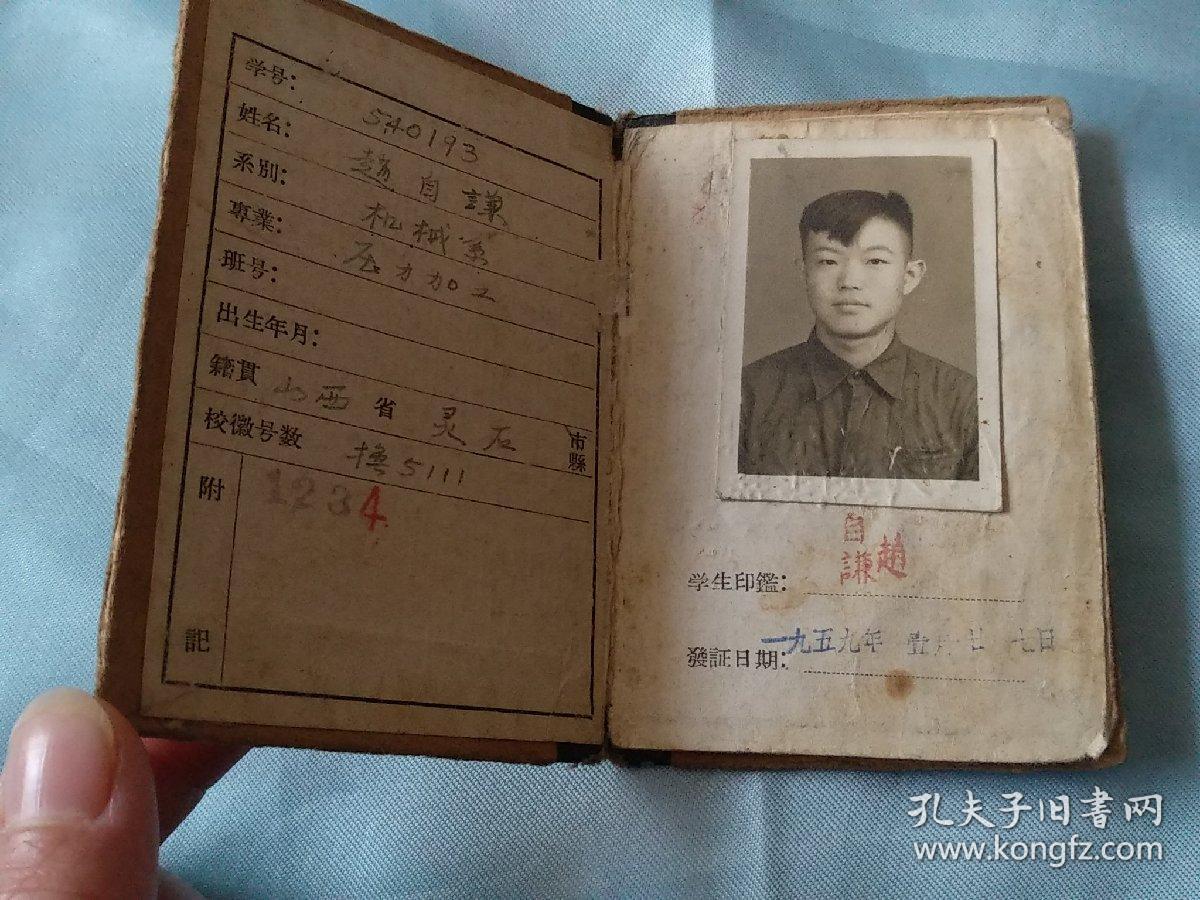 学号: 540193
姓名: 趙自謙
系別: 机械系
專業: 压力加工
班号:
出生年月:
籍貫 山西 省 灵石 市縣
校徽号数 换5111
附記 1234
自謙 趙
学生印鑑:
發証日期: 一九五九年 壹月廿七日
孔夫子旧书网
www.kongfz.com